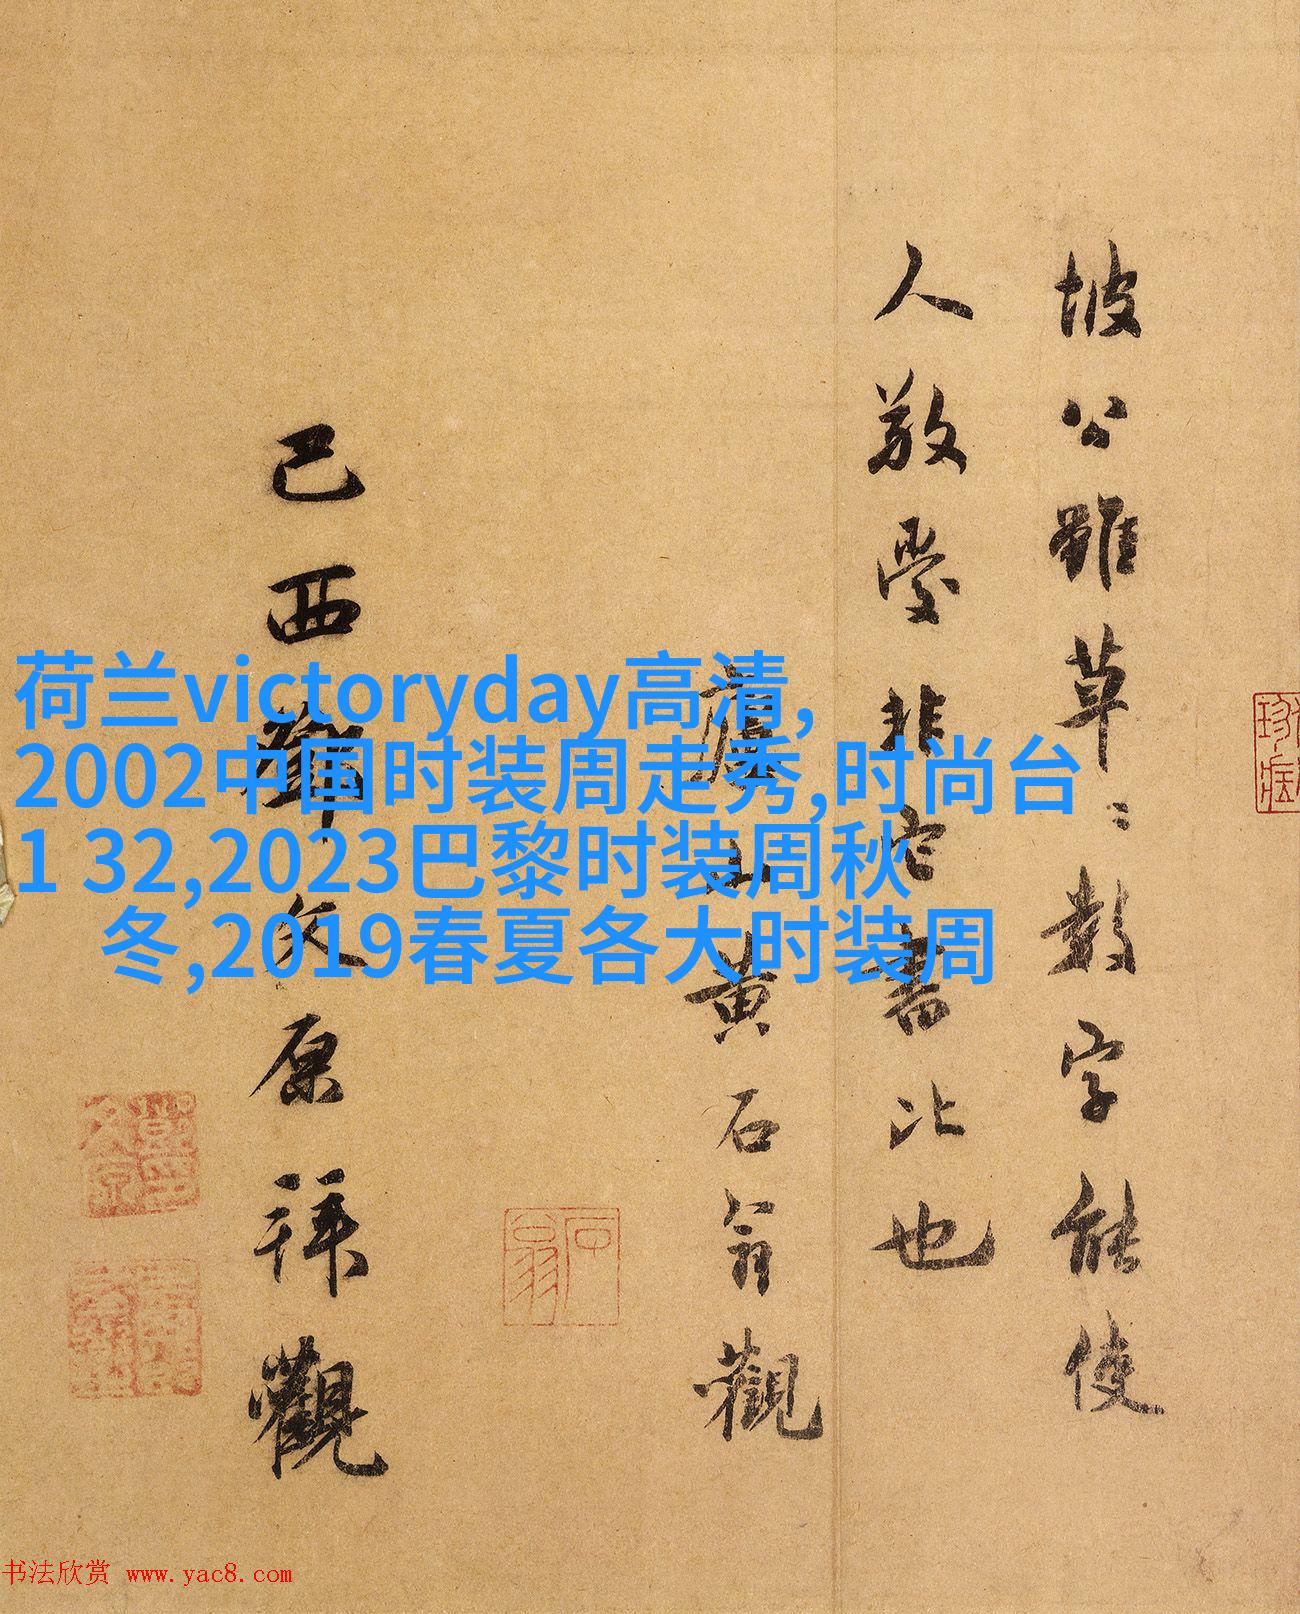 坡公雖草〻數字能使
人敬愛非它書比也
廬山黃石翁觀
己酉鄧文原拜觀
石翁
荷兰victoryday高清,
2002中国时装周走秀,时尚台
1 32,2023巴黎时装周秋
冬,2019春夏各大时装周
书法欣赏 www.yac8.com